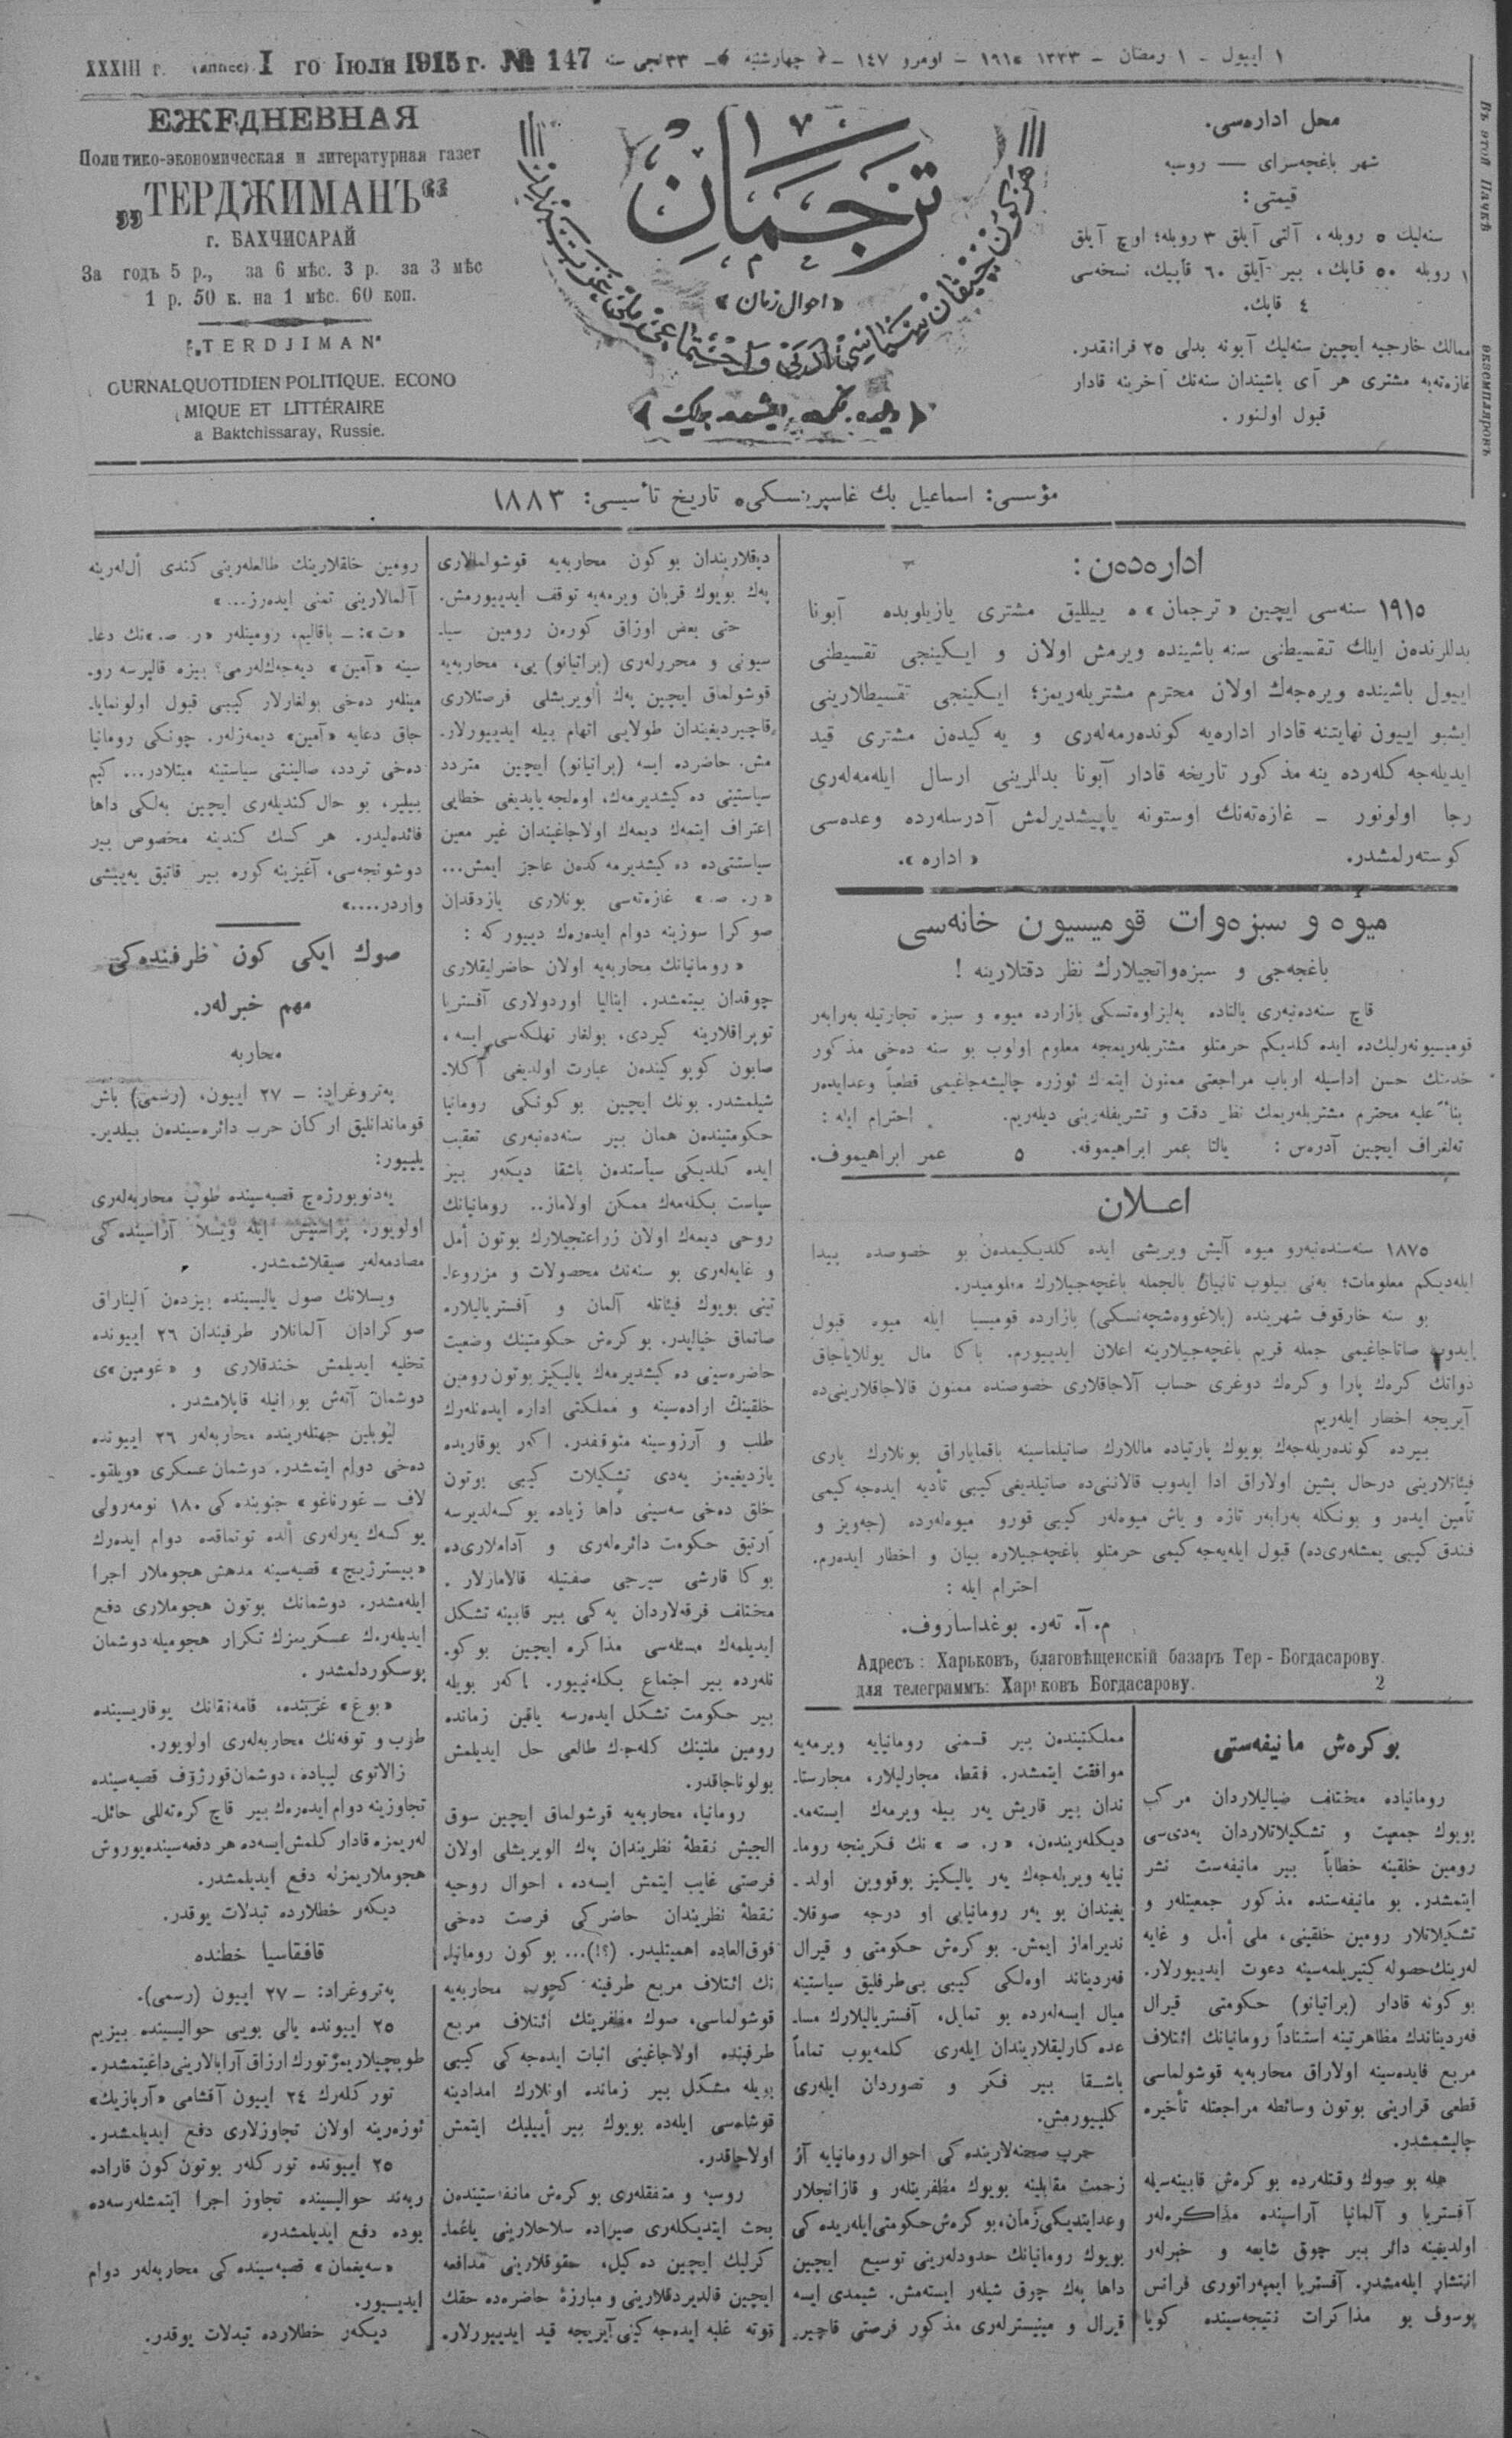 XXXIII г. (аппее) I го Іюля 1915 г. № 147
١ اييول ـ ١ رمضان ـ ١٣٣٣ ـ ١٩١٥ ـ نومرو ١٤٧ ـ ﴿ چهارشنبه ﴾ ـ ٣٣ نجى سنه
ЕЖЕДНЕВНАЯ
Политико-экономическая и литературная газет
„ТЕРДЖИМАНЪ“
г. БАХЧИСАРАЙ
За годъ 5 р., за 6 мѣс. 3 р. за 3 мѣс
1 р. 50 к. на 1 мѣс. 60 коп.
„TERDJIMAN"
OURNALQUOTIDIEN POLITIQUE. ECONO
MIQUE ET LITTÉRAIRE
a Baktchissaray, Russie.
ترجمان
«احوال زمان»
﴿ ديلده، فكرده، ايشده بيرليك ﴾
محل اداره‌سى.
شهر باغچه‌سراى — روسيه
قيمتى:
سنه‌ليك ٥ روبله، آلتى آيلق ٣ روبله؛ اوچ آيلق
١ روبله ٥٠ قاپك، بير آيلق ٦٠ قاپيك، نسخه‌سى
٤ قاپك.
ممالك خارجيه ايچين سنه‌ليك آبونه بدلى ٢٥ فرانقدر.
غازه‌ته‌يه مشترى هر آى باشيندان سنه‌نك آخرينه قادار
قبول اولنور.
Въ этой пачкѣ экземпляровъ
مؤسسى: اسماعيل بك غاسپرينسكى، تاريخ تأسيسى: ١٨٨٣
اداره‌دەن:
١٩١٥ سنه‌سى ايچين «ترجمان»ه ييلليق مشترى يازيلوبده آبونا
بدللرندەن ايلك تقسيطنى سنه باشينده ويرمش اولان و ايكينجى تقسيطنى
اييول باشينده ويره‌جەك اولان محترم مشتريله‌ريمز؛ ايكينجى تقسيطلارينى
ايشبو اييون نهايتنه قادار اداره‌يه كوندەرمه‌له‌رى و يه‌كيدەن مشترى قيد
ايديله‌جه كله‌رده ينه مذكور تاريخه قادار آبونا بدللرينى ارسال ايله‌مه‌له‌رى
رجا اولونور ـ غازه‌ته‌نك اوستونه ياپيشديرلمش آدرسله‌رده وعده‌سى
كوسته‌رلمشدر. «اداره».
ميوه و سبزه‌وات قوميسيون خانه‌سى
باغچه‌جى و سبزه‌واتجيلارك نظر دقتلارينه !
قاچ سنه‌دەنبه‌رى يالتاده يه‌ليزاوه‌تسكى بازارده ميوه و سبزه تجارتيله به‌رابه‌ر
قوميسيونه‌رليك‌ده ايده كلديكم حرمتلو مشتريله‌ريمجه معلوم اولوب بو سنه ده‌خى مذكور
خدمتك حسن اداسيله ارباب مراجعتى ممنون ايتمك ئوزره چاليشه‌جاغيمى قطعياً وعدايده‌ر
بناءً عليه محترم مشتريله‌ريمك نظر دقت و تشريفله‌رينى ديله‌ريم. احترام ايله :
ته‌لغراف ايچين آدره‌س : يالتا عمر ابراهيموفه. ٥ عمر ابراهيموف.
اعــلان
١٨٧٥ سنه‌سندەنبه‌رو ميوه آليش ويريشى ايده كلديكيمدەن بو خصوصده پيدا
ايله‌ديكم معلومات؛ به‌نى بيلوب تانيان بالجمله باغچه‌جيلارك معلوميدر.
بو سنه خارقوف شهرينده (بلاغووه‌شچه‌نسكى) بازارده قوميسيا ايله ميوه قبول
ايدوب صاتاجاغيمى جمله قريم باغچه‌جيلارينه اعلان ايدييورم. باكا مال يوللاياجاق
ذواتك كرەك پارا و كرەك دوغرى حساب آلاجاقلارى خصوصنده ممنون قالاجاقلارينى‌ده
آيريجه اخطار ايله‌ريم
بيرده كونده‌ريله‌جەك بويوك پارتياده ماللارك صاتيلماسينه باقماياراق بونلارك يارى
فيئاتلارينى درحال پشين اولاراق ادا ايدوب قالاننى‌ده صاتيلديغى كيبى تأديه ايده‌جه كيمى
تأمين ايده‌ر و بونكله به‌رابه‌ر تازه و ياش ميوه‌له‌ر كيبى قورو ميوه‌له‌رده (جه‌ويز و
فندق كيبى يمشله‌رى‌ده) قبول ايله‌يه‌جه كيمى حرمتلو باغچه‌جيلاره بيان و اخطار ايده‌رم.
احترام ايله :
م. آ. ته‌ر. بوغداساروف.
Адресъ: Харьковъ, благовѣщенскій базаръ Тер - Богдасарову.
для телеграммъ: Харьковъ Богдасарову. 2
بوكرەش مانيفه‌ستى
رومانياده مختلف ضياليلاردان مركب
بويوك جمعيت و تشكيلاتلاردان يه‌دى‌سى
رومين خلقينه خطاباً بير مانيفه‌ست نشر
ايتمشدر. بو مانيفه‌ستده مذكور جمعيتله‌ر و
تشكيلاتلار رومين خلقينى، ملى أمل و غايه
له‌رينك حصوله كتيريلمه‌سينه دعوت ايدييورلار.
بو كونه قادار (براتيانو) حكومتى قيرال
فه‌رديناندك مظاهرتينه استناداً رومانيانك ائتلاف
مربع فايده‌سينه اولاراق محاربه‌يه قوشولماسى
قطعى قرارينى بوتون وسائطه مراجعتله تأخيره
چاليشمشدر.
هله بو صوك وقتله‌رده بوكرەش قابينه‌سيله
آفستريا و آلمانيا آراسينده مذاكره‌له‌ر
اولديغينه دائر بير چوق شايعه و خبرله‌ر
انتشار ايله‌مشدر. آفستريا ايمپه‌راتورى فرانس
يوسوف بو مذاكرات نتيجه‌سينده كويا
مملكتيندەن بير قسمنى رومانيايه ويرمه‌يه
موافقت ايتمشدر. فقط، مجارليلار، مجارستا-
ندان بير قاريش يه‌ر بيله ويرمەك ايسته‌مه-
ديكله‌ريندەن، «ر. ص» نك فكرينجه روما-
نيايه ويريله‌جەك يه‌ر ياليكيز بوقووين اولد-
يغيندان بو يه‌ر رومانيايى او درجه صوقلا-
نديراماز ايمش. بوكرەش حكومتى و قيرال
فه‌رديناند اوه‌لكى كيبى بى‌طرفليق سياستينه
ميال ايسه‌له‌رده بو تمايل، آفسترياليلارك مسا-
عده كارليقلاريندان ايله‌رى كلمه‌يوب تماماً
باشــقا بير فكر و تصوردان ايله‌رى
كلييورمش.
حرب صحنه‌لارينده كى احوال رومانيايه آز
زحمت مقابلينه بويوك مظفريتله‌ر و قازانجلار
وعدايتديكى زمان، بوكرەش حكومتى ايله‌ريده كى
بويوك رومانيانك حدودله‌رينى توسيع ايچين
داها پەك چوق شيله‌ر ايسته‌مش. شيمدى ايسه
قيرال و مينيسترله‌رى مذكور فرصتى قاچير-
ديقلاريندان بو كون محاربه‌يه قوشولمالارى
پەك بويوك قربان ويرمه‌يه توقف ايدييورمش.
حتى بعض اوزاق كورەن رومين سيا-
سيونى و محررله‌رى (براتيانو) يى، محاربه‌يه
قوشولماق ايچين پەك ألويريشلى فرصتلارى
قاچيرديغيندان طولايى اتهام بيله ايدييورلار-
مش. حاضرده ايسه (براتيانو) ايچين متردد
سياستينى ده كيشديرمەك، اوه‌لجه ياپديغى خطايى
اعتراف ايتمەك ديمەك اولاجاغيندان غير معين
سياستنى‌ده ده كيشديرمه كدەن عاجز ايمش...
«ر. ص» غازه‌ته‌سى بونلارى يازدقدان
صوكرا سوزينه دوام ايده‌رەك دييوركه :
«رومانيانك محاربه‌يه اولان حاضرليقلارى
چوقدان بيتمشدر. ايتاليا اوردولارى آفستريا
توپراقلارينه كيردى، بولغار تهلكه‌سى ايسه،
صابون كوپوكيندەن عبارت اولديغى آكلا-
شيلمشدر. بونك ايچين بوكونكى رومانيا
حكومتيندەن همان بير سنه‌دەنبه‌رى تعقيب
ايده كلديكى سياستدەن باشقا ديكه‌ر بير
سياست بكله‌مەك ممكن اولاماز.. رومانيانك
روحى ديمەك اولان زراعتجيلارك بوتون أمل
و غايه‌له‌رى بو سنه‌نك محصولات و مزروعا-
تينى بويوك فيئاتله آلمان و آفسترياليلاره
صاتماق خياليدر. بوكرەش حكومتينك وضعيت
حاضره‌سينى ده كيشديرمەك ياليكيز بوتون رومين
خلقينك اراده‌سينه و مملكتى اداره ايده‌نله‌رك
طلب و آرزوسينه متوقفدر. اكه‌ر يوقاريده
يازديغيمز يه‌دى تشكيلات كيبى بوتون
خلق ده‌خى سه‌سينى داها زياده يوكسه‌لديرسه
آرتيق حكومت دائره‌له‌رى و آداملارى‌ده
بوكا قارشى سيرجى صفتيله قالامازلار.
مختلف فرقه‌لاردان يه‌كى بير قابينه تشكل
ايديلمەك مسئله‌سى مذاكره ايچين بوكو-
نله‌رده بير اجتماع بكله‌نييور. اكه‌ر بويله
بير حكومت تشكل ايده‌رسه ياقين زمانده
رومين ملتينك كله‌جەك طالعى حل ايديلمش
بولوناجاقدر.
رومانيا، محاربه‌يه قوشولماق ايچين سوق
الجيش نقطهٔ نظريندان پەك الويريشلى اولان
فرصتى غايب ايتمش ايسه‌ده، احوال روحيه
نقطهٔ نظريندان حاضركى فرصت ده‌خى
فوق‌العاده اهميتليدر. (؟!)... بو كون رومانيا-
نك ائتلاف مربع طرفينه كچوب محاربه‌يه
قوشولماسى، صوك مظفريتك ائتلاف مربع
طرفينده اولاجاغينى اثبات ايده‌جه كى كيبى
بويله مشكل بير زمانده اونلارك امدادينه
قوشماسى ايله‌ده بويوك بير أييليك ايتمش
اولاجاقدر.
روسيه و متفقله‌رى بوكرەش مانيفه‌ستيندەن
بحث ايتديكله‌رى صيراده سلاحلارينى ياغما-
كرليك ايچين ده كيل، حقوقلارينى مدافعه
ايچين قالديردقلارينى و مبارزهٔ حاضره‌ده حقك
قوته غلبه ايده‌جه كينى آيريجه قيد ايدييورلار.
رومين خلقلارينك طالعله‌رينى كندى أل‌له‌رينه
آلمالارينى تمنى ايده‌رز...»
«ت»: ـ باقاليم، رومينله‌ر «ر. ص.»نك دعا-
سينه «آمين» ديه‌جەك‌له‌رمى؟ بيزه قاليرسه رو-
مينله‌ر ده‌خى بولغارلار كيبى قبول اولونمايا-
جاق دعايه «آمين» ديمه‌زله‌ر. چونكى رومانيا
ده‌خى تردد، صالينتى سياستينه مبتلادر... كيم
بيلير، بو حال كنديله‌رى ايچين به‌لكى داها
فائده‌ليدر. هر كسك كندينه مخصوص بير
دوشونجه‌سى، آغيزينه كوره بير قاتيق يه‌ييشى
واردر....»
صوك ايكى كون ظرفنده‌كى
مهم خبرله‌ر.
محاربه
په‌تروغراد: ـ ٢٧ اييون، (رسمى) باش
قوماندانليق اركان حرب دائره‌سيندەن بيلدير-
يلييور:
يه‌دنوبورژه‌چ قصبه‌سينده طوپ محاربه‌له‌رى
اولويور. پراسنيش ايله ويسلا آراسينده كى
مصادمه‌له‌ر صيقلاشمشدر.
ويسلانك صول ياليسينده بيزدەن آليناراق
صوكرادان آلمانلار طرفيندان ٢٦ اييونده
تخليه ايديلمش خندقلارى و «غومين»ى
دوشمان آتەش بورانيله قاپلامشدر.
ليوبلين جهتله‌رينده محاربه‌له‌ر ٢٦ اييونده
ده‌خى دوام ايتمشدر. دوشمان عسكرى «ويلقو-
لاف ـ غورناغو» جنوبنده كى ١٨٠ نومه‌رولى
يوكسەك يه‌رله‌رى ألده توتماقده دوام ايده‌رك
«بيسترژيچ» قصبه‌سينه مدهش هجوملار اجرا
ايله‌مشدر. دوشمانك بوتون هجوملارى دفع
ايديله‌رەك عسكريمزك تكرار هجوميله دوشمان
پوسكوردلمشدر.
«بوغ» غربنده، قامه‌نقانك يوقاريسينده
طوپ و توفه‌نك محاربه‌له‌رى اولويور.
زالاتوى ليپاده، دوشمان قورژوف قصبه‌سينده
تجاوزينه دوام ايده‌رەك بير قاچ كره‌ته‌للى حائل-
له‌ريمزه قادار كلمش ايسه‌ده هر دفعه‌سينده يوروش
هجوملاريمزله دفع ايديلمشدر.
ديكه‌ر خطلارده تبدلات يوقدر.
قافقاسيا خطنده
په‌تروغراد: ـ ٢٧ اييون (رسمى).
٢٥ اييونده يالى بويى حواليسينده بيزيم
طوپچيلاريمز تورك ارزاق آرابالارينى داغيتمشدر.
توركله‌رك ٢٤ اييون آقشامى «آريازيك»
ئوزه‌رينه اولان تجاوزلارى دفع ايديلمشدر.
٢٥ اييونده توركله‌ر بوتون كون قاراده
ربه‌ند حواليسينده تجاوز اجرا ايتمشله‌رسه‌ده
بوده دفع ايديلمشدر.
«سه‌يغمان» قصبه‌سينده كى محاربه‌له‌ر دوام
ايدييور.
ديكه‌ر خطلارده تبدلات يوقدر.